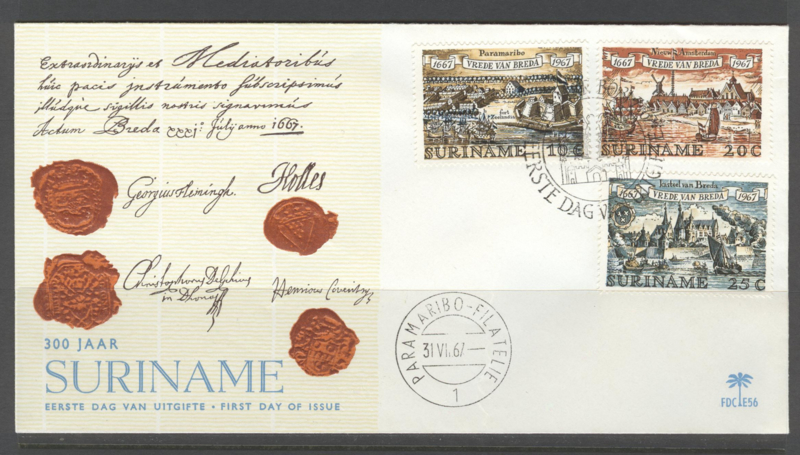 Extraordinarijs et Mediatoribus
huic pacis instrumento subscripsimus
illudque sigillis nostris signavimus
Actum Breda xxxi° Julij anno 1667.
Georgius Flemingh.
Holles
Christophorus Delphius
in Dhona
Henricus Coventry
300 JAAR
SURINAME
EERSTE DAG VAN UITGIFTE • FIRST DAY OF ISSUE
Paramaribo
1667 VREDE VAN BREDA 1967
SURINAME 10C
Nieuw Amsterdam
1667 VREDE VAN BREDA 1967
SURINAME 20C
Kasteel van Breda
1667 VREDE VAN BREDA 1967
SURINAME 25C
EERSTE DAG
PARAMARIBO-FILATELIE
31 VII. 67
1
FDC E56